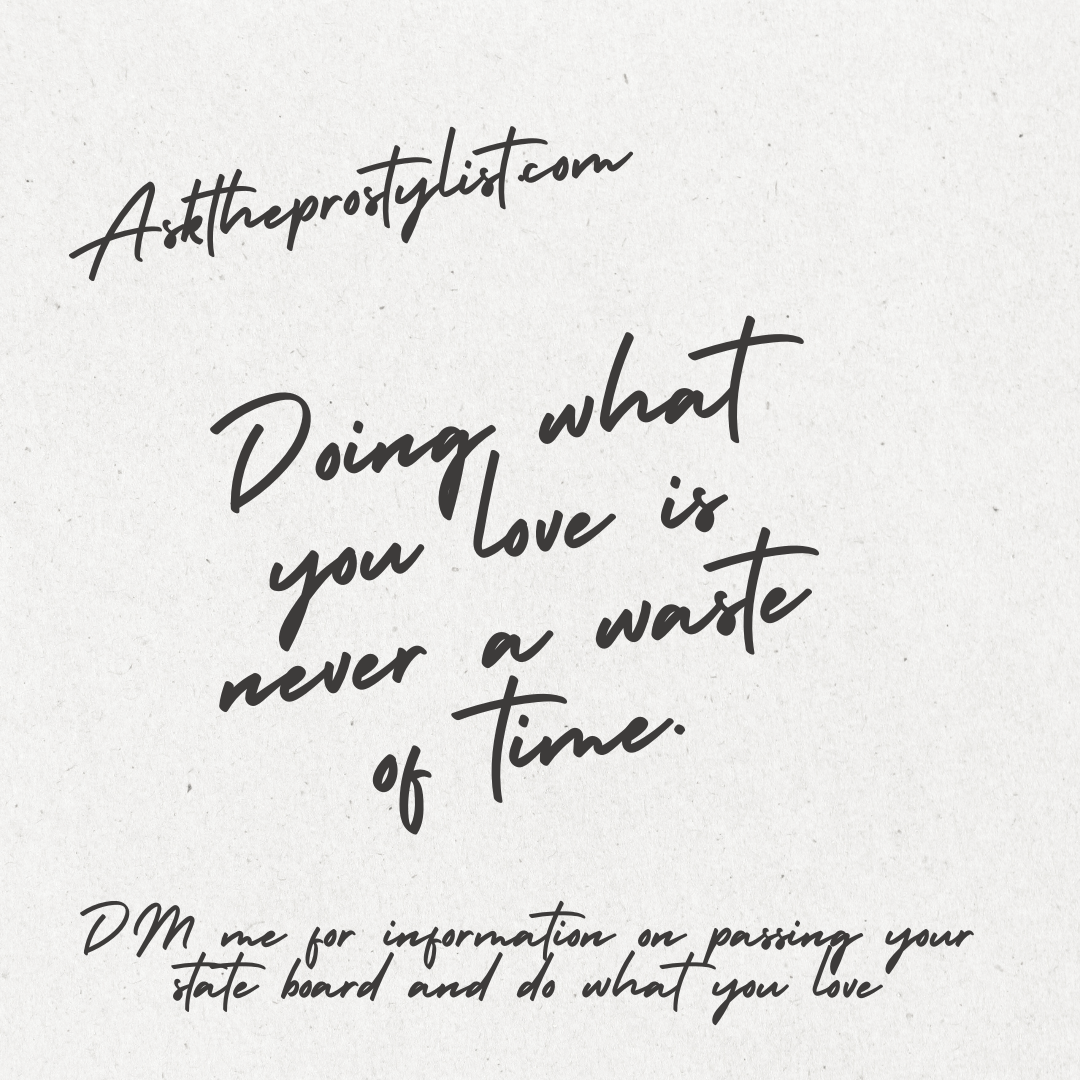 Asktheprostylist.com
Doing what
you love is
never a waste
of time.
DM me for information on passing your
state board and do what you love